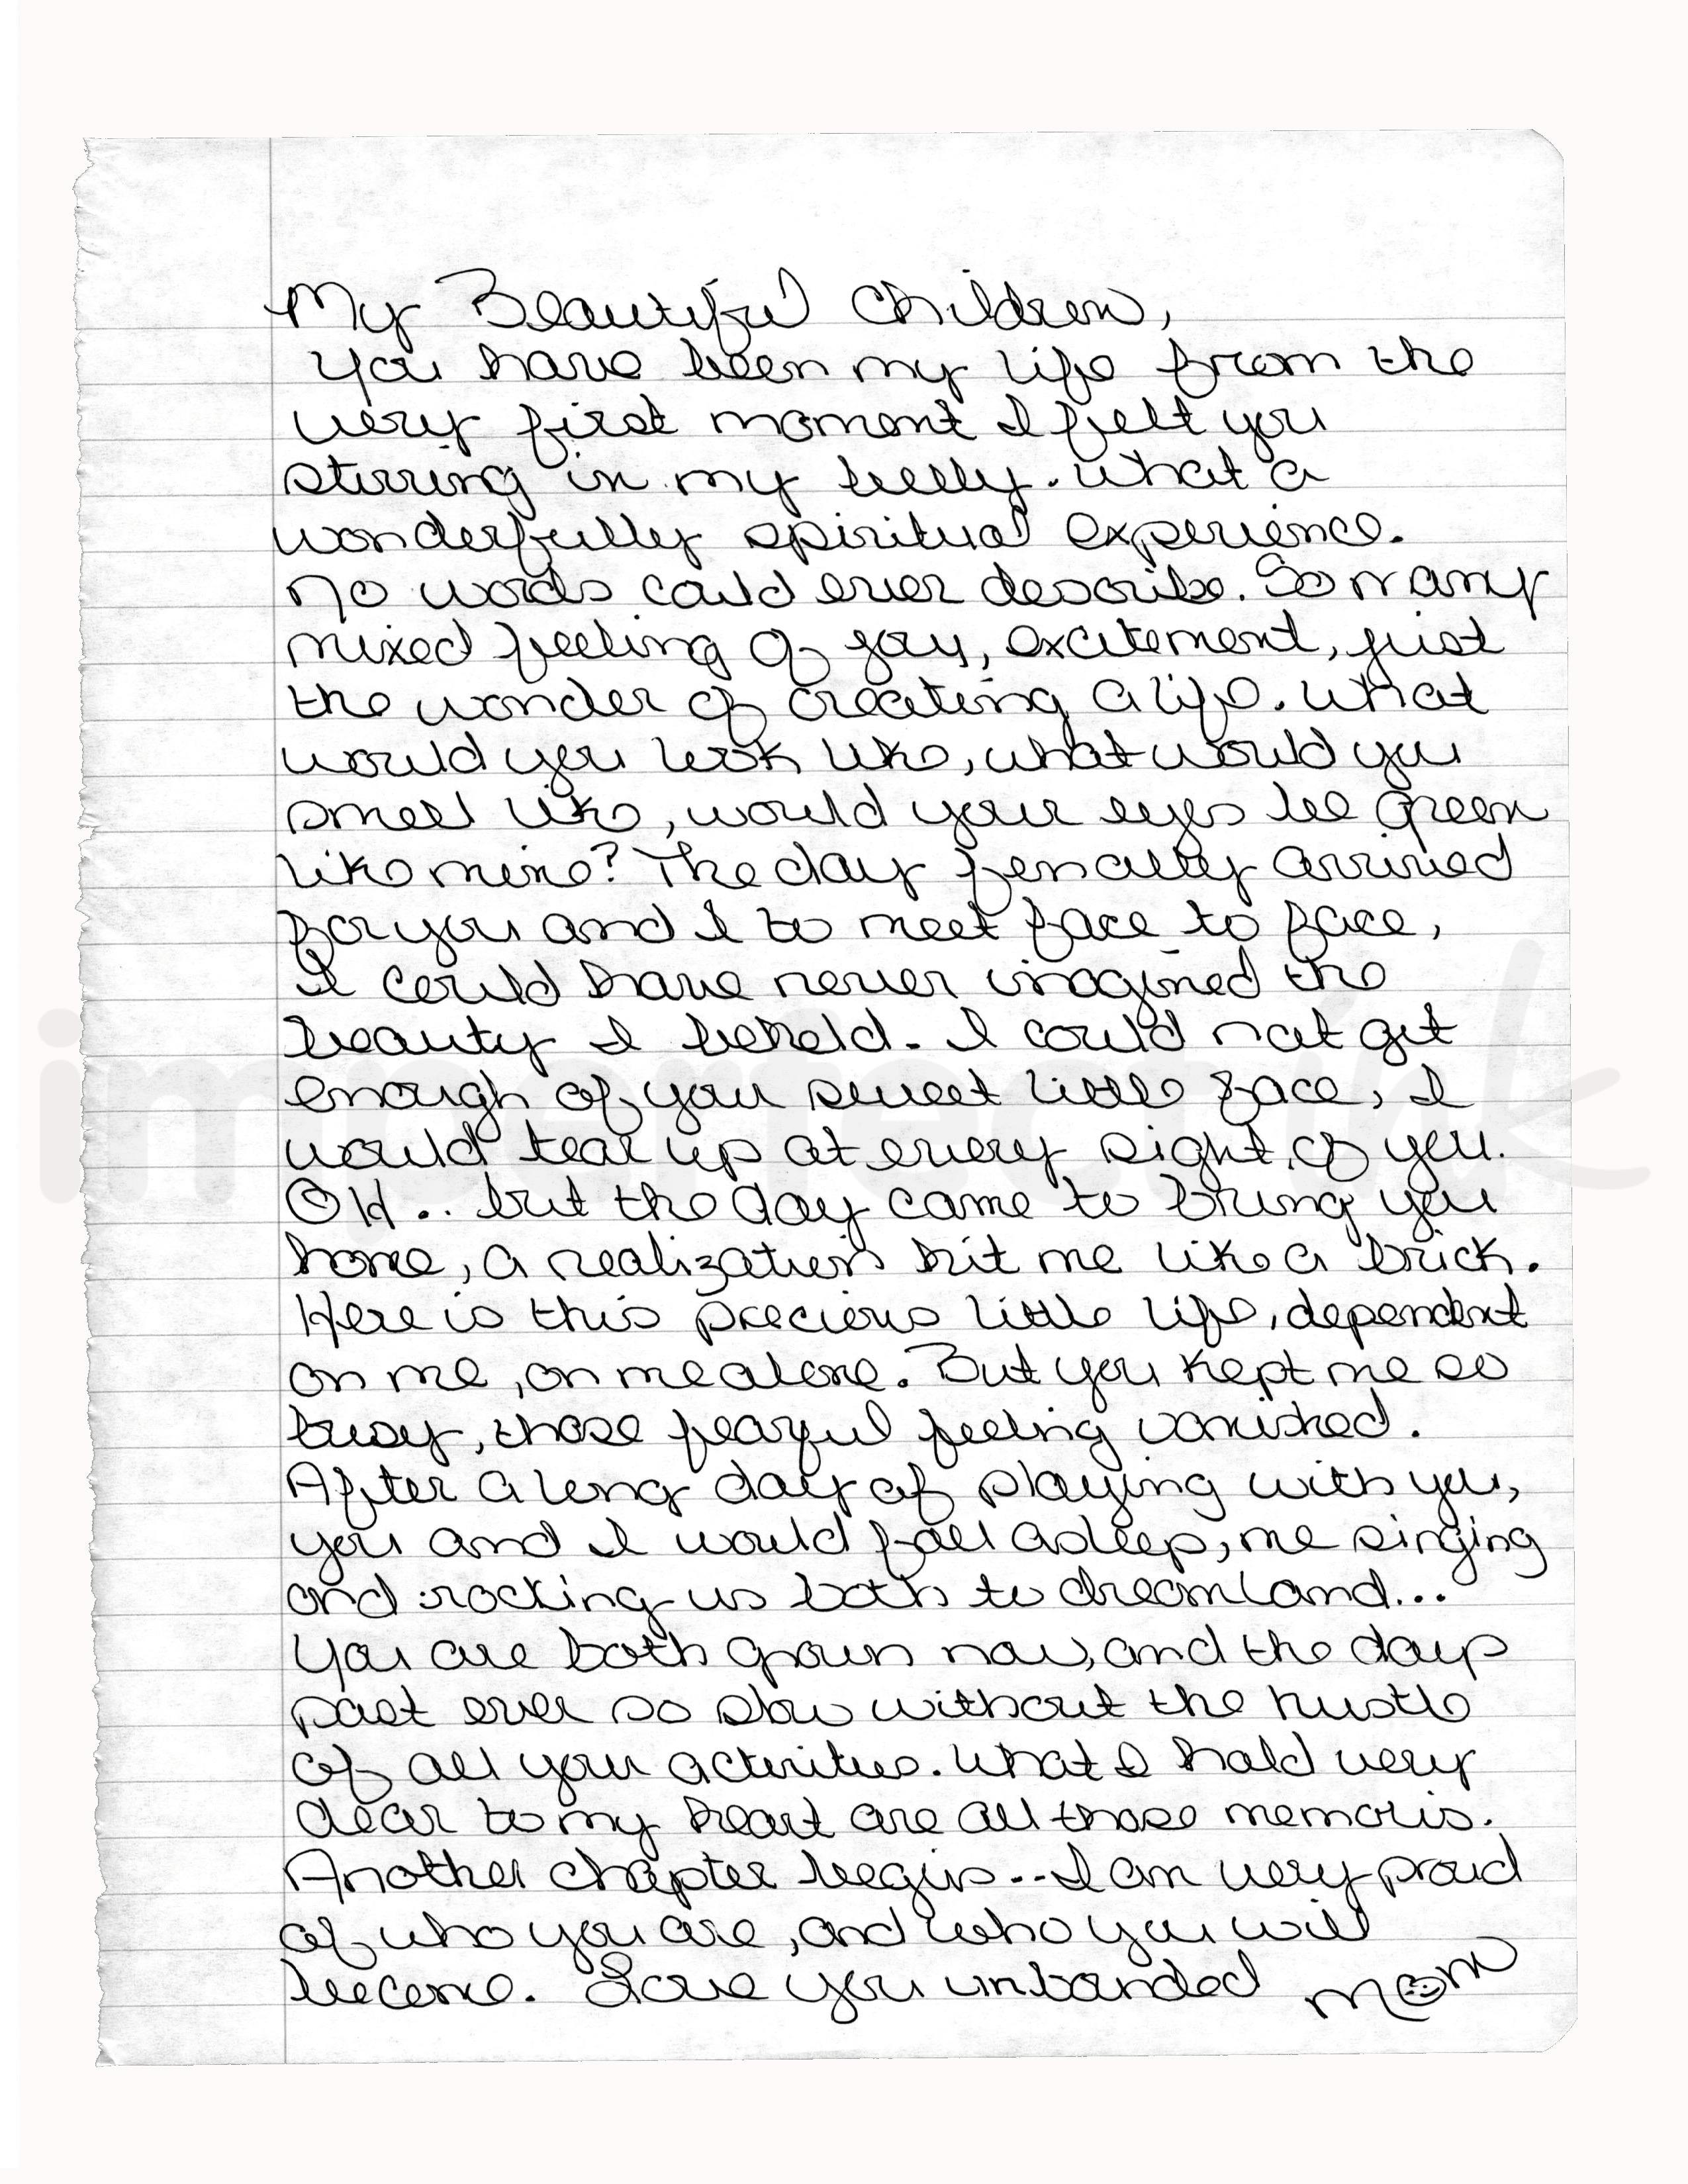 My Beautiful Children,
You have been my life from the
very first moment I felt you
stirring in my belly. What a
wonderfully spiritual experience.
No words could ever describe. So many
mixed feeling of joy, excitement, just
the wonder of creating a life. What
would you look like, what would you
smell like, would your eyes be green
like mine? The day finally arrived
for you and I to meet face to face,
I could have never imagined the
beauty I beheld. I could not get
enough of your sweet little face, I
would tear up at every sight of you.
OH.. but the day came to bring you
home, a realization hit me like a brick.
Here is this precious little life, dependent
on me, on me alone. But you kept me so
busy, those fearful feeling vanished.
After a long day of playing with you,
you and I would fall asleep, me singing
and rocking us both to dreamland...
You are both grown now, and the days
past ever so slow without the hustle
of all your activities. What I hold very
dear to my heart are all those memoris.
Another chapter begins... I am very proud
of who you are, and who you will
become. Love you unbonded Mom